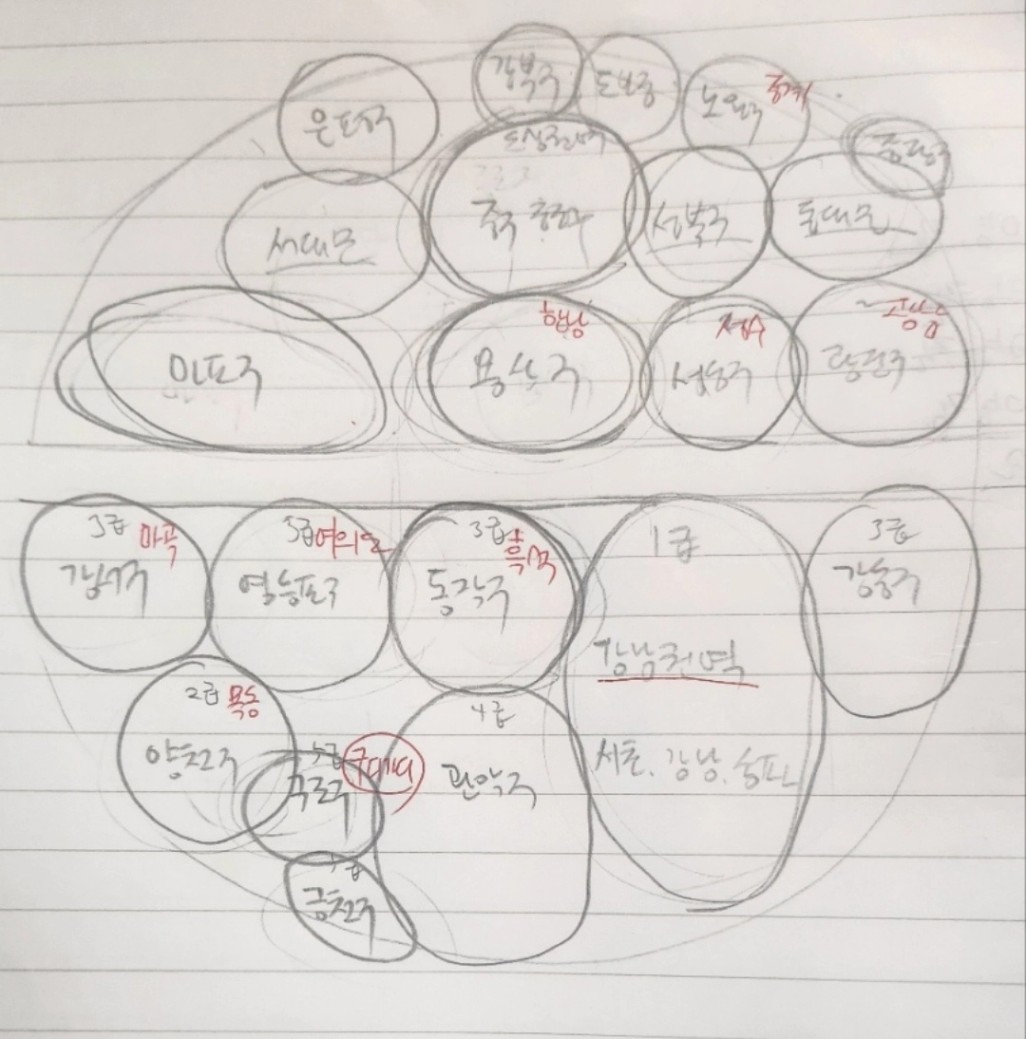 은평구
강북구
도봉구
노원구
중계
중랑구
도심권역
중구 종로구
서대문
성북구
동대문
마포구
용산구
한남
성동구
성수
광진구
~광장
3급 마곡
강서구
3급 여의도
영등포구
3급 흑석
동작구
1급
강남권역
서초. 강남. 송파
3급
강동구
2급 목동
양천구
5급
구로구
4급
관악구
금천구